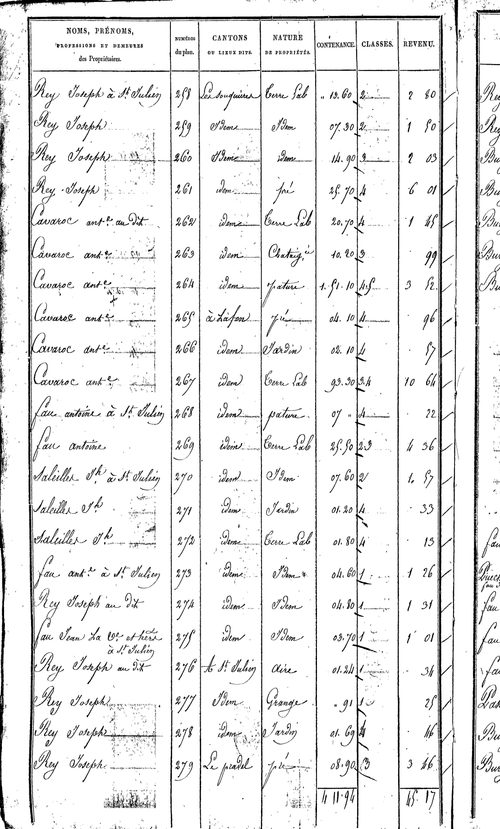 NOMS, PRÉNOMS, PROFESSIONS ET DEMEURES des Propriétaires. NUMÉROS du plan. CANTONS OU LIEUX DITS. NATURE DE PROPRIÉTÉS. CONTENANCE. CLASSES. REVENU.
Rey Joseph à St. Julien 258 Les souquieres Terre Lab " 13.60 2 2 20
Rey Joseph 259 Idem Idem 07.30 2 1 50
Rey Joseph 260 Idem idem 14.90 3 2 03
Rey Joseph 261 idem pré 25.70 4 6 01
Cavaroc ant.e au dit 262 idem Terre Lab 20.70 4 1 45
Cavaroc ant.e 263 idem Chataig.e 10.20 3 99
Cavaroc ant.e 264 idem pature 1.51.10 4.5 3 52
Cavaroc ant.e 265 à Lafon pré 04.10 4 96
Cavaroc ant.e 266 idem Jardin 02.10 4 57
Cavaroc ant.e 267 idem Terre Lab 93.30 3.4 10 64
fau antoine à St. Julien 268 idem pature 07 " 4 22
fau antoine 269 idem Terre Lab 25.50 2 3 4 36
saleilles Jh à St. Julien 270 idem Idem 07.60 2 1 57
saleilles Jh 271 idem Jardin 01.20 4 33
saleilles Jh 272 idem Terre Lab 01.80 4 13
fau ant.e à St. Julien 273 idem Idem 04.60 1 1 26
Rey Joseph au dit 274 idem Idem 04.80 1 1 31
fau Jean La Ve. et hérs. à St. Julien 275 idem Idem 03.70 1 1 01
Rey Joseph au dit 276 à St. Julien aire 01.24 1 34
Rey Joseph 277 Idem Grange " 91 1 25
Rey Joseph 278 idem Jardin 01.69 4 46
Rey Joseph 279 Le pradel pré 08.90 3 3 46
4 11.94 45 17